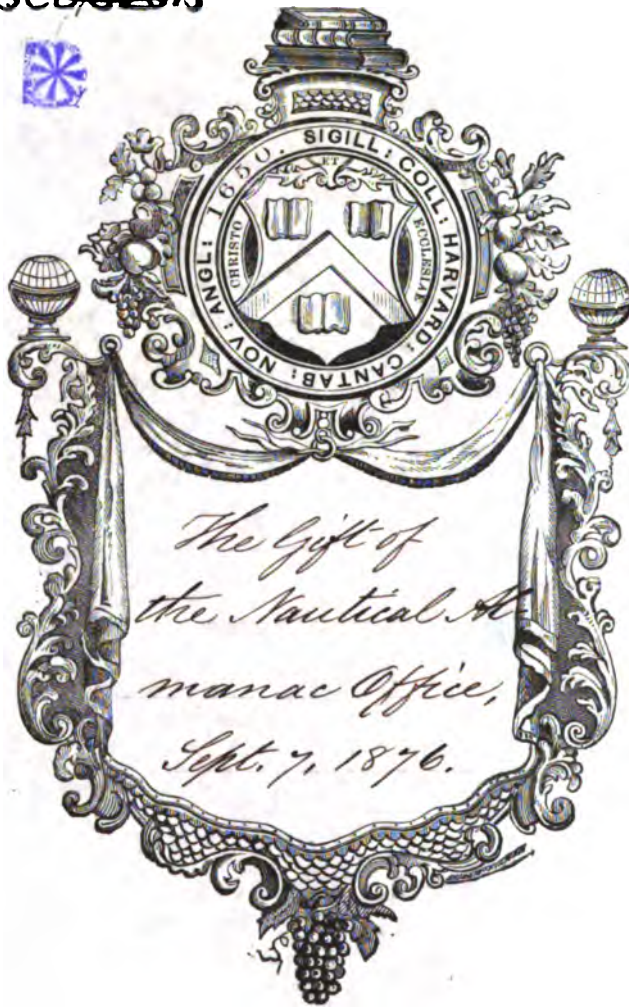 SIGILL: COLL: HARVARD: CANTAB: NOV: ANGL: 1650.
ET
CHRISTO
ECCLESIAE
The Gift of
the Nautical Al
manac Office,
Sept. 7, 1876.